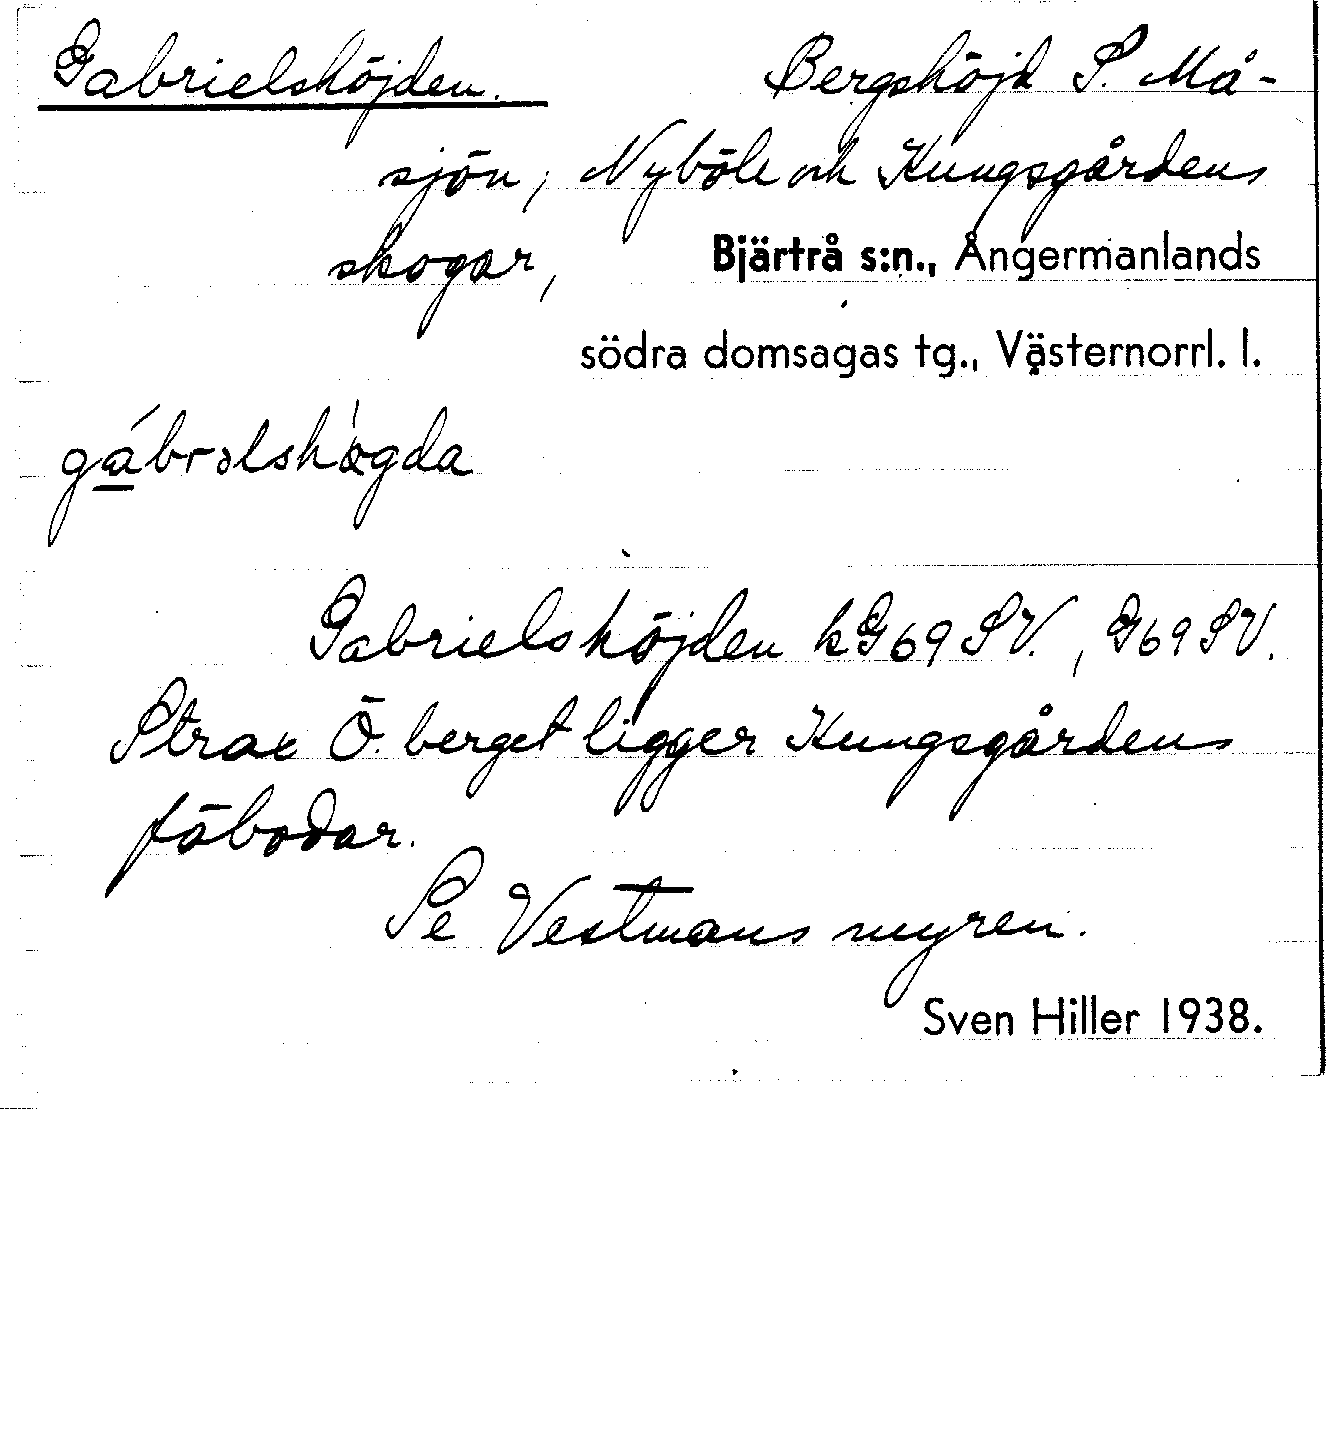 Gabrielshöjden. Bergshöjd S. Må-
sjön, Nyböle och Kungsgårdens
skogar, Bjärtrå s:n., Ångermanlands
södra domsagas tg., Västernorrl. l.
gábrəlshø̀gda
Gabrielshöjden kG69SV., G69SV.
Strax Ö. berget ligger Kungsgårdens
fäbodar.
Se Vestmansmyren.
Sven Hiller 1938.